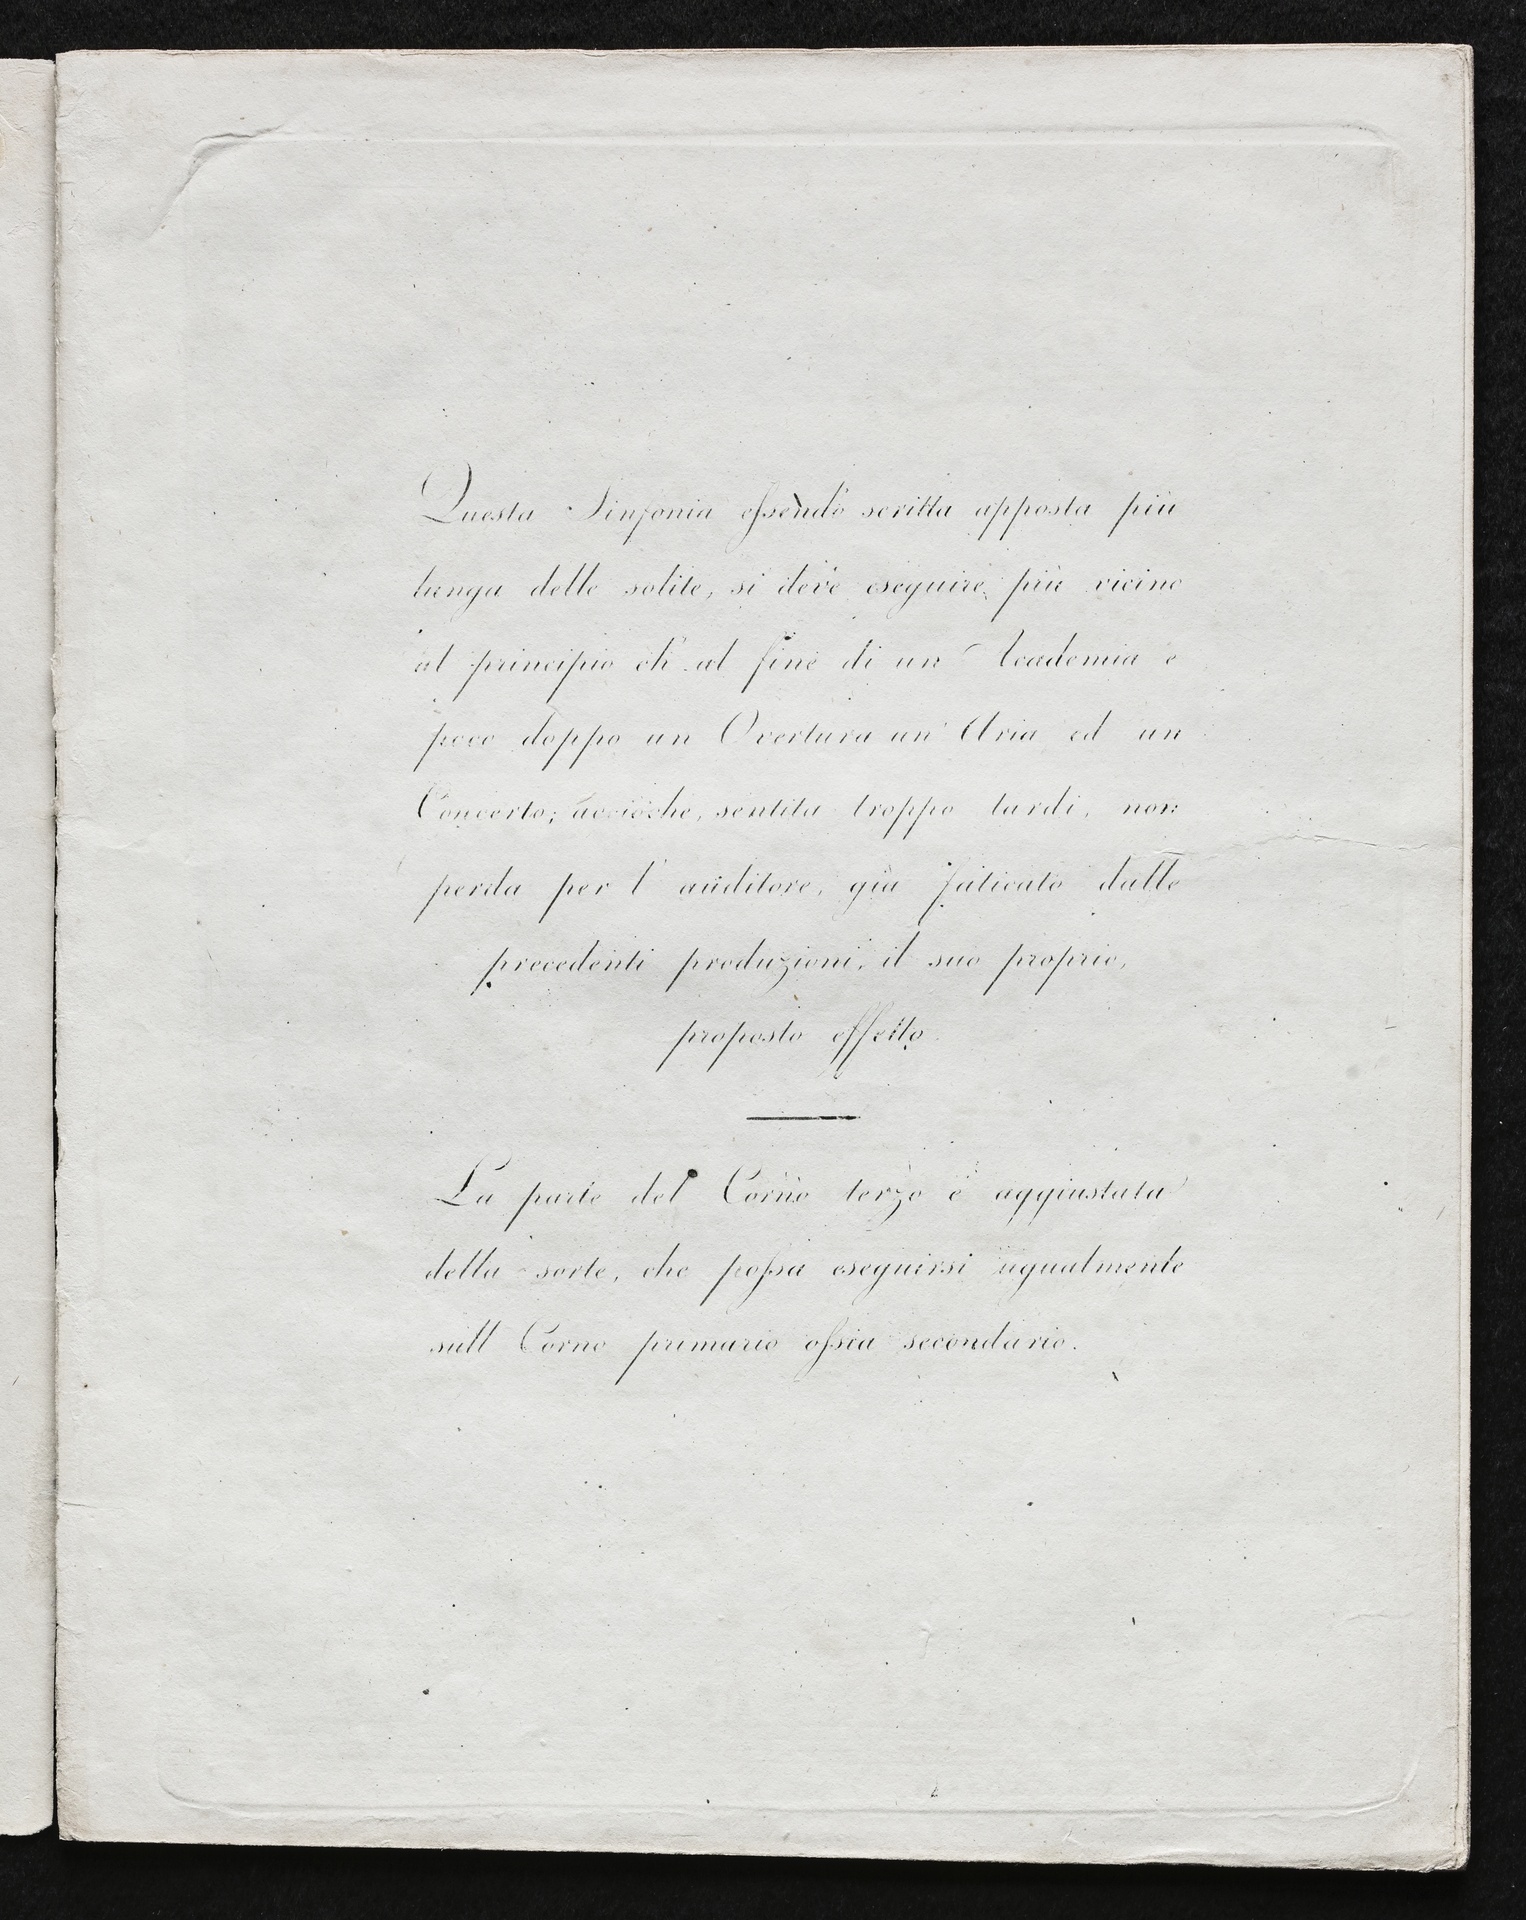 Questa Sinfonia essendo scritta apposta più
lunga delle solite, si deve eseguire più vicino
al principio ch' al fine di un Academia e
poco doppo un Overtura un' Aria ed un
Concerto; accioche, sentita troppo tardi, non
perda per l' auditore, già faticato dalle
precedenti produzioni, il suo proprio,
proposto effetto.
La parte del Corno terzo è aggiustata
della sorte, che possa eseguirsi ugualmente
sull Corno primario ossia secondario.